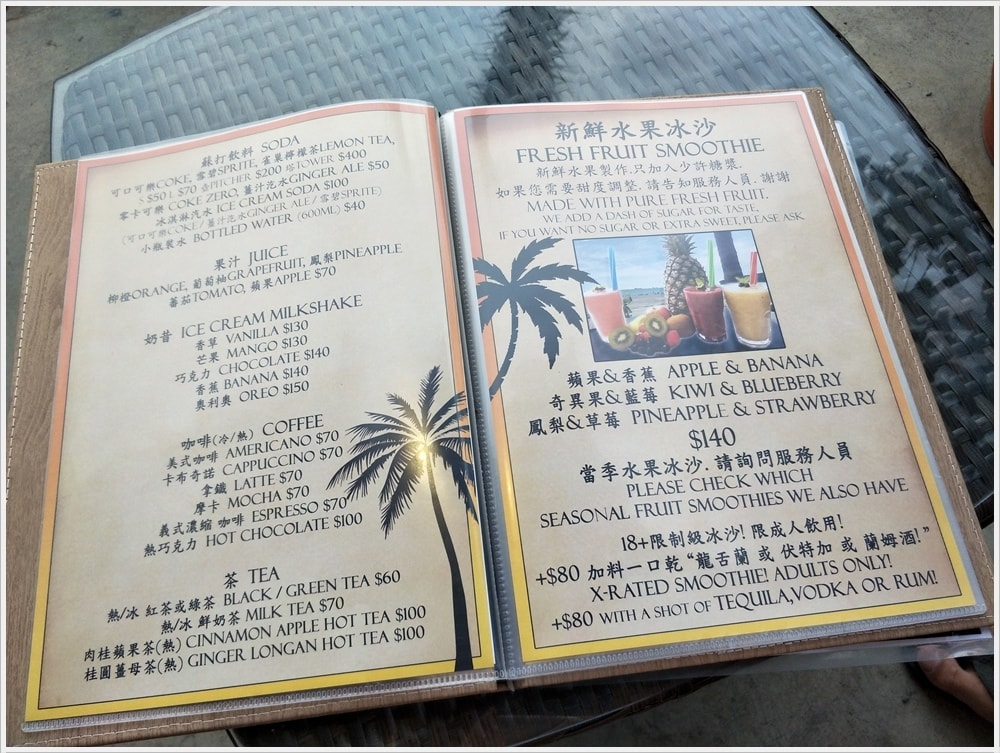 蘇打飲料 SODA
可口可樂COKE, 雪碧SPRITE, 雀巢檸檬茶LEMON TEA,
S $50 L $70 壺PITCHER $200 塔TOWER $400
零卡可樂 COKE ZERO, 薑汁汽水GINGER ALE $50
冰淇淋汽水 ICE CREAM SODA $100
(可口可樂COKE/ 薑汁汽水GINGER ALE / 雪碧SPRITE)
小瓶裝水 BOTTLED WATER (600ML) $40
果汁 JUICE
柳橙ORANGE, 葡萄柚GRAPEFRUIT, 鳳梨PINEAPPLE
蕃茄TOMATO, 蘋果APPLE $70
奶昔 ICE CREAM MILKSHAKE
香草 VANILLA $130
芒果 MANGO $130
巧克力 CHOCOLATE $140
香蕉 BANANA $140
奧利奧 OREO $150
咖啡(冷/熱) COFFEE
美式咖啡 AMERICANO $70
卡布奇諾 CAPPUCCINO $70
拿鐵 LATTE $70
摩卡 MOCHA $70
義式濃縮 咖啡 ESPRESSO $70
熱巧克力 HOT CHOCOLATE $100
茶 TEA
熱/冰 紅茶或綠茶 BLACK / GREEN TEA $60
熱/冰 鮮奶茶 MILK TEA $70
肉桂蘋果茶(熱) CINNAMON APPLE HOT TEA $100
桂圓薑母茶(熱) GINGER LONGAN HOT TEA $100
新鮮水果冰沙
FRESH FRUIT SMOOTHIE
新鮮水果製作.只加入少許糖漿.
如果您需要甜度調整. 請告知服務人員. 謝謝
MADE WITH PURE FRESH FRUIT.
WE ADD A DASH OF SUGAR FOR TASTE,
IF YOU WANT NO SUGAR OR EXTRA SWEET, PLEASE ASK
蘋果&香蕉 APPLE & BANANA
奇異果&藍莓 KIWI & BLUEBERRY
鳳梨&草莓 PINEAPPLE & STRAWBERRY
$140
當季水果冰沙. 請詢問服務人員
PLEASE CHECK WHICH
SEASONAL FRUIT SMOOTHIES WE ALSO HAVE
18+限制級冰沙! 限成人飲用!
+$80 加料一口乾 “龍舌蘭 或 伏特加 或 蘭姆酒!”
X-RATED SMOOTHIE! ADULTS ONLY!
+$80 WITH A SHOT OF TEQUILA,VODKA OR RUM!